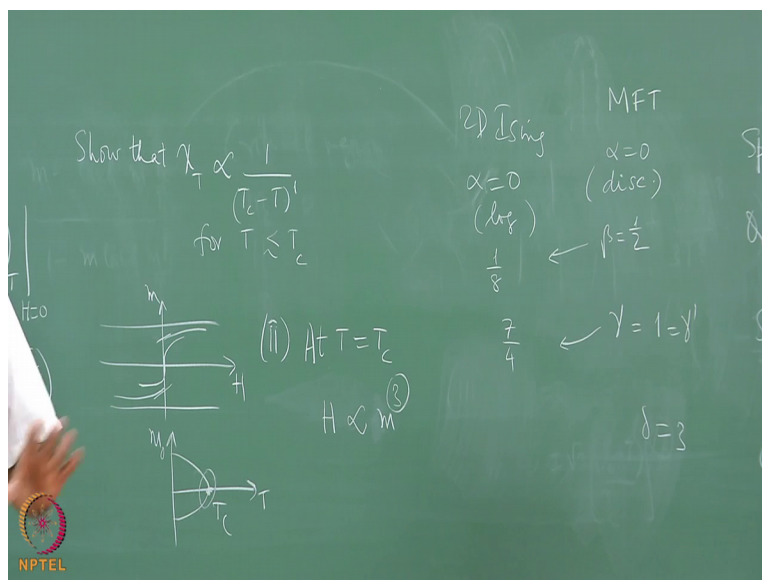 Show that χ_T ∝ 1/(T_c − T)^1
for T ≲ T_c
T
H=0
m
H
(ii) At T = T_c
H ∝ m^3
m_0
T
T_c
2D Ising
α = 0
(log)
1/8
7/4
MFT
α = 0
(disc.)
← β = 1/2
← γ = 1 = γ'
δ = 3
Sp
NPTEL